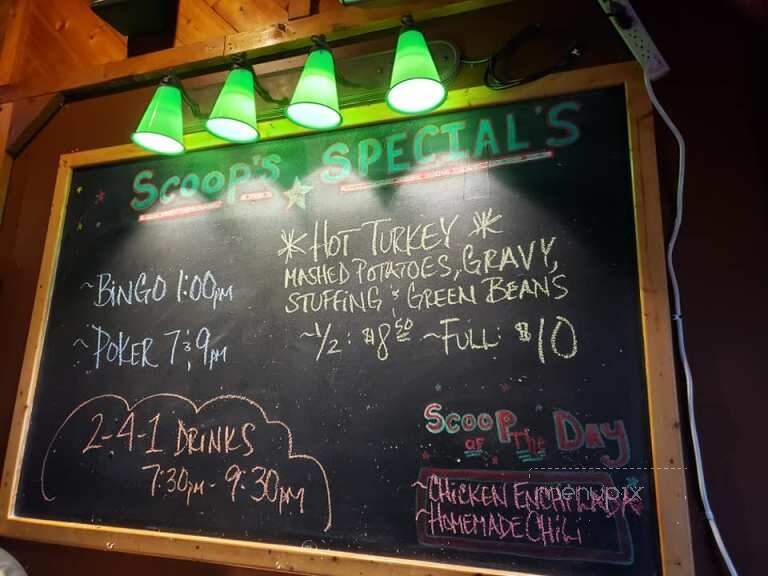 Scoop's ☆ SPECIAL'S
~BiNGO 1:00pm
~POKER 7 & 9pm
2-4-1 DRiNKS
7:30pm - 9:30pm
* HOT TURKEY *
MASHED POTATOES, GRAVY,
STUFFiNG & GREEN BEANS
~1/2: $8.50 ~FULL: $10
Scoop
OF The Day
~CHiCKEN ENCHiLADA
~HOMEMADE CHiLi
menupix